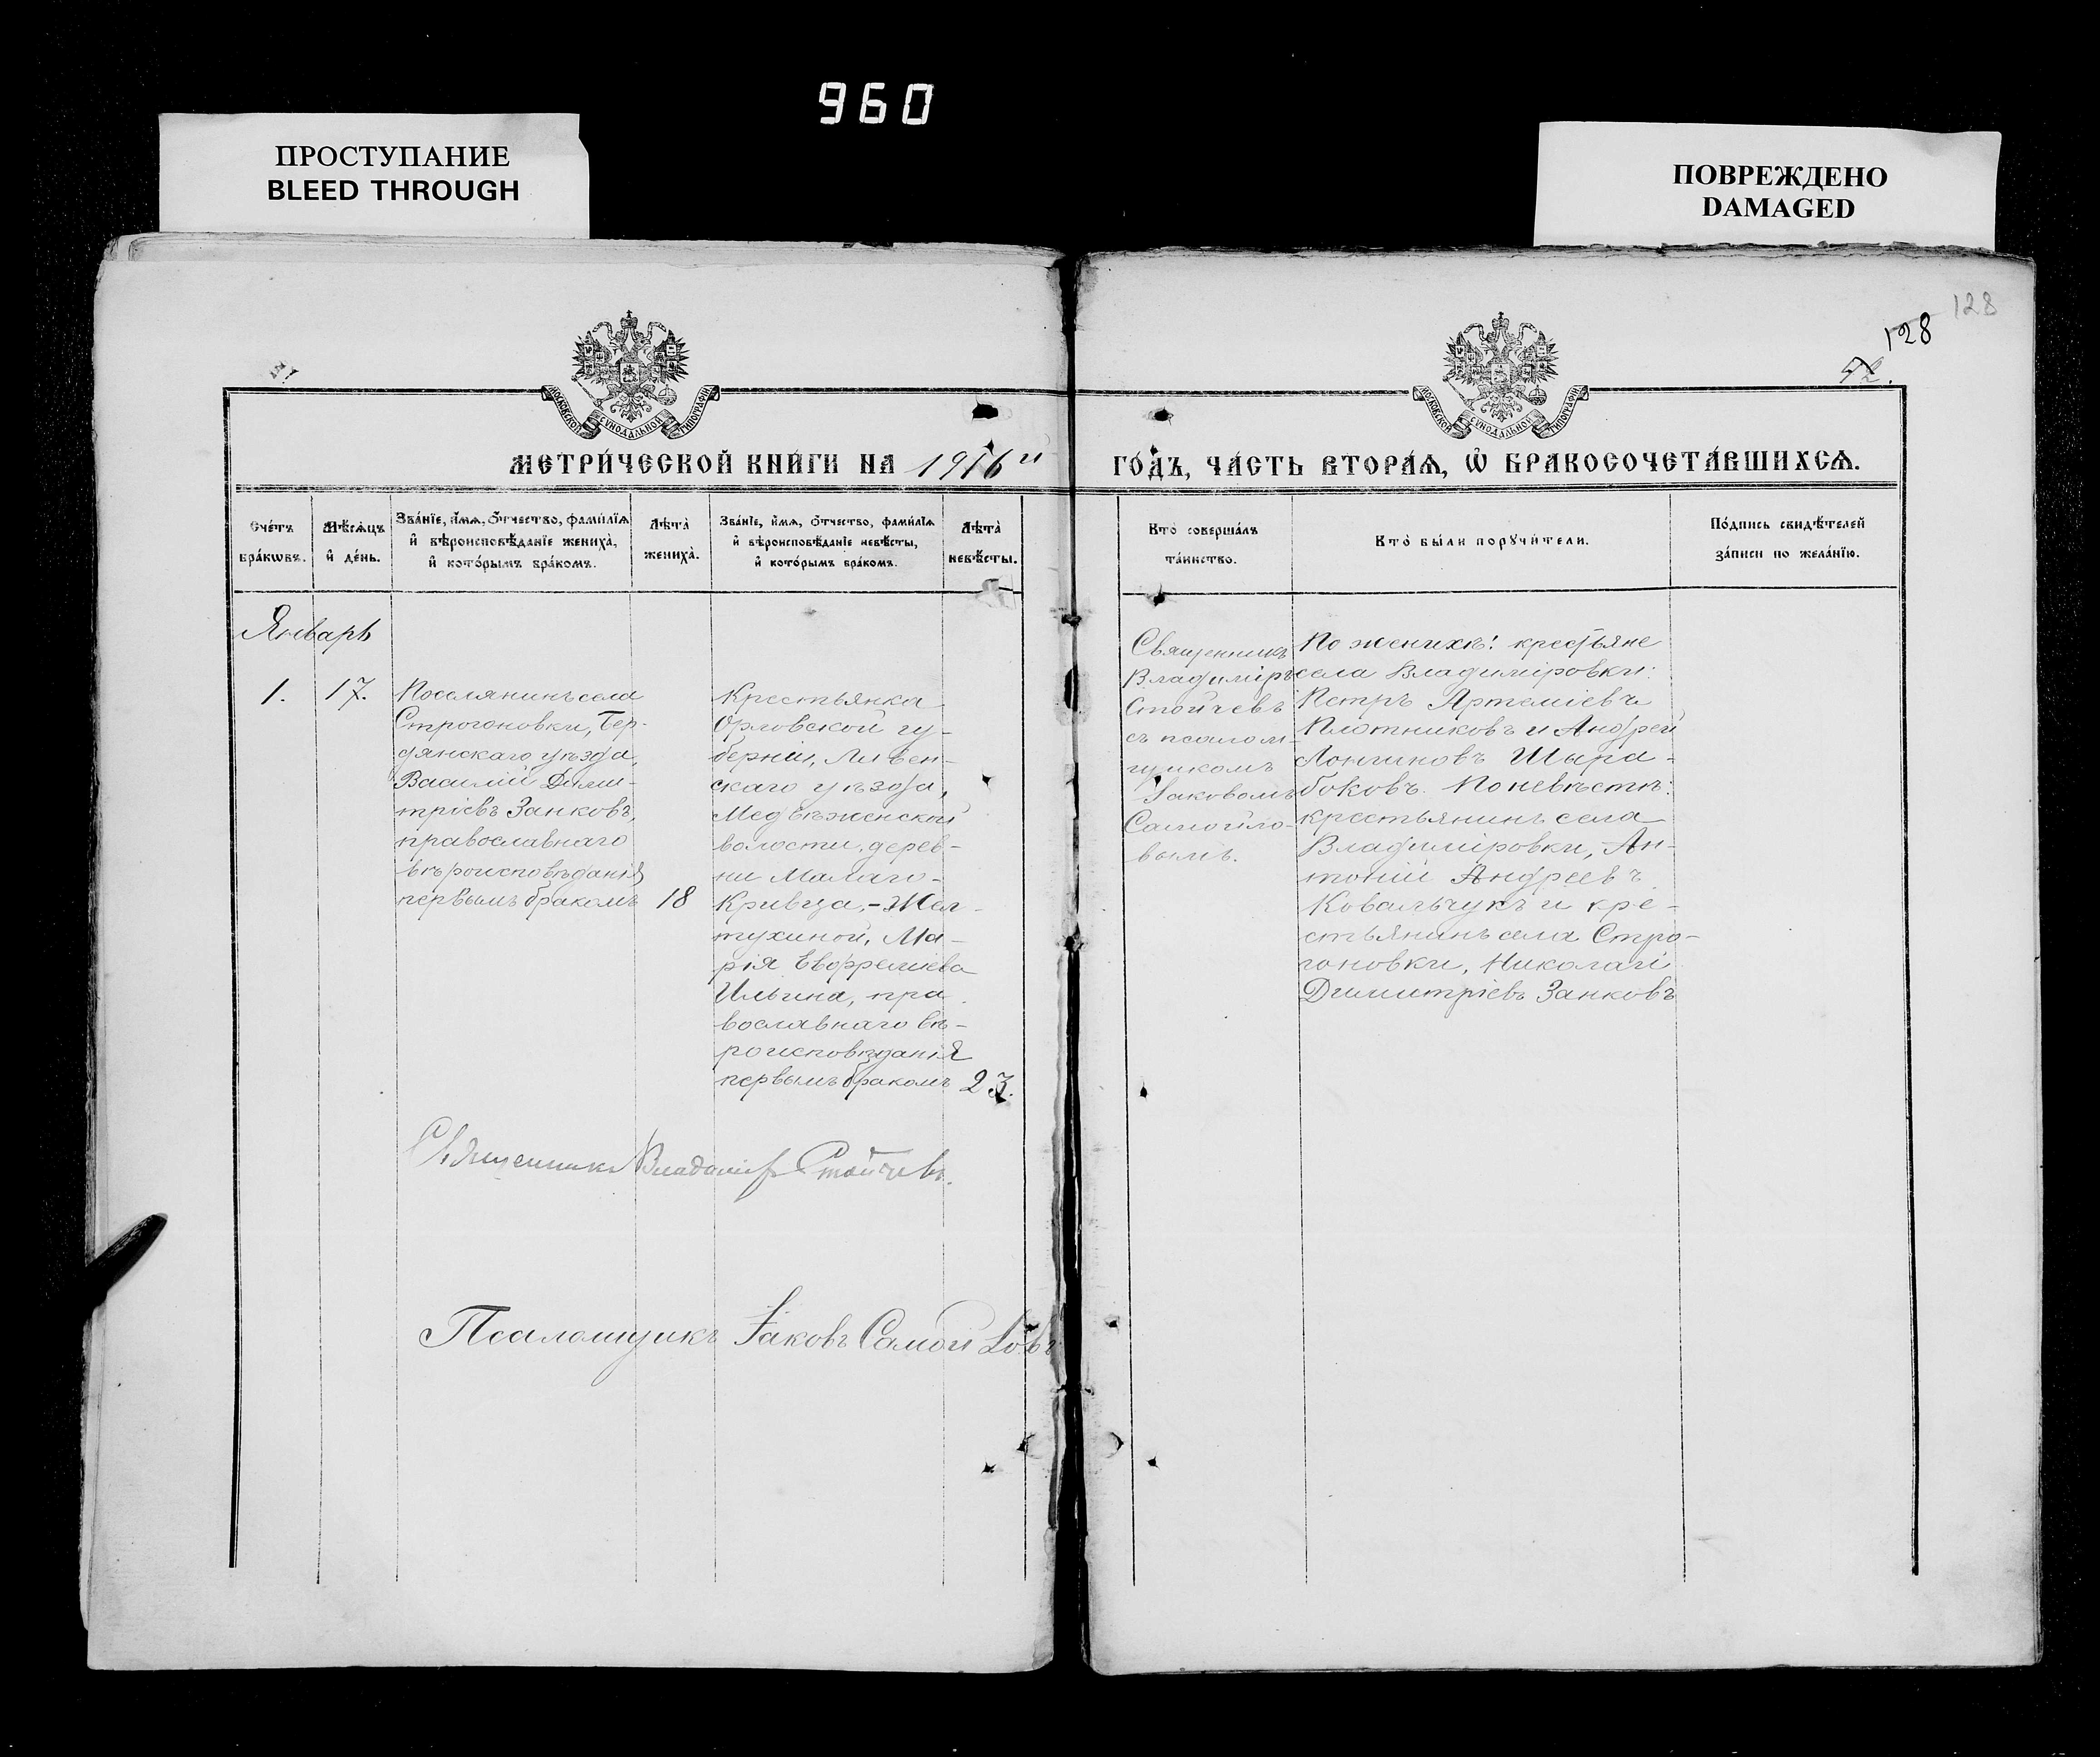 960
ПРОСТУПАНИЕ
BLEED THROUGH
ПОВРЕЖДЕНО
DAMAGED
128
128
42.
МОСКОВСКОЙ СѴНОДАЛЬНОЙ ТИПОГРАФІИ
МОСКОВСКОЙ СѴНОДАЛЬНОЙ ТИПОГРАФІИ
МЕТРИ́ЧЕСКОЙ КНИ́ГИ НА 1916 й
ГО́ДЪ, ЧА́СТЬ ВТОРА́Ѧ, Ѽ БРАКОСОЧЕТА́ВШИХСѦ.
Сче́тъ
бра́кѡвъ.
Мѣ́сѧцъ
и҆ де́нь.
Зва́нїе, и҆́мѧ, ѻ҆́тчество, фами́лїѧ
и҆ вѣроисповѣ́данїе жениха̀,
и҆ кото́рымъ бра́комъ.
Лѣта̀
жениха̀.
Зва́нїе, и҆́мѧ, ѻ҆́тчество, фами́лїѧ
и҆ вѣроисповѣ́данїе невѣ́сты,
и҆ кото́рымъ бра́комъ.
Лѣта̀
невѣ́сты.
Кто̀ соверша́лъ
та́инство.
Кто̀ бы́ли порꙋчи́тели.
По́дпись свидѣ́телей
за́писи по жела́нїю.
Январь
1.
17.
Поселянинъ села
Строгоновки, Бер-
дянскаго уѣзда,
Василій Дими-
тріевъ Занковъ,
православнаго
вѣроисповѣданія
первымъ бракомъ
18
Крестьянка
Орловской гу-
берніи, Ливен-
скаго уѣзда,
Медвѣженской
волости, дерев-
ни Малаго-
Кривца, - Жел-
тухиной, Ма-
рія Евфреміева
Ильина, пра-
вославнаго вѣ-
роисповѣданія
первымъ бракомъ
23.
Священникъ
Владиміръ
Стойчевъ
съ псалом-
щикомъ
Іаковомъ
Самойло-
вымъ.
По женихѣ: крестьяне
села Владиміровки:
Петръ Артеміевъ
Плотниковъ и Андрей
Логиновъ Шыра-
боковъ. По невѣстѣ:
крестьянинъ села
Владиміровки, Ан-
тоній Андреевъ
Ковальчукъ и кре-
стьянинъ села Стро-
гоновки, Николай
Димитріевъ Занковъ
Священникъ Владиміръ Стойчевъ.
Псаломщикъ Іаковъ Самойловъ